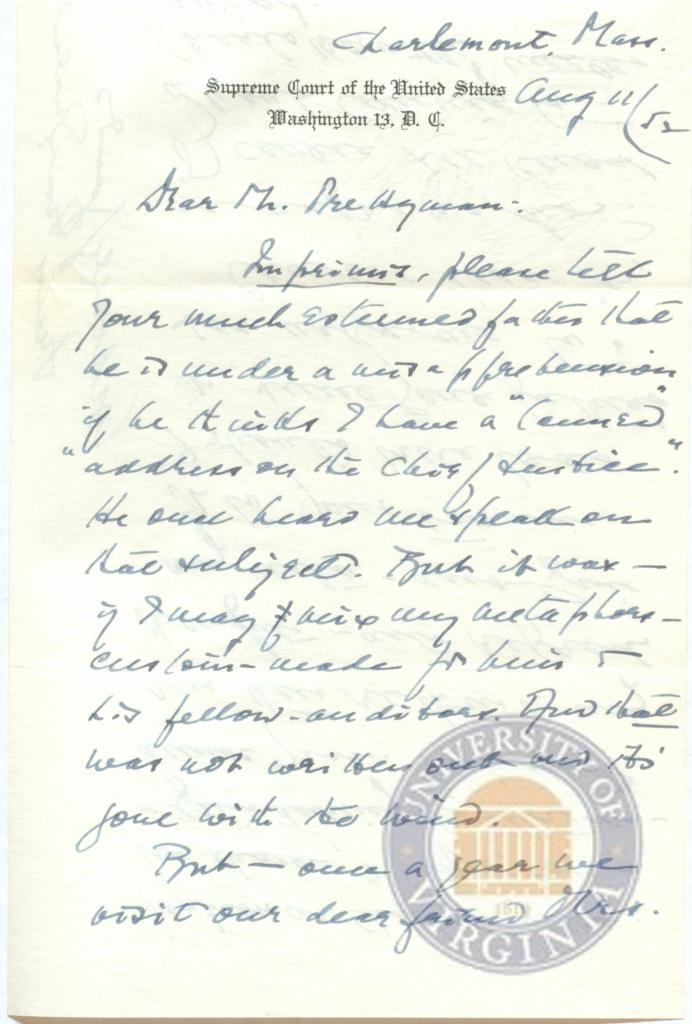 Charlemont, Mass.
Supreme Court of the United States
Washington 13, D. C.
Aug 11/52
Dear Mr. Prettyman:
Imprimis, please tell
your much esteemed father that
he is under a misapprehension
if he thinks I have a "canned"
"address on the Chief Justice".
He once heard me speak on
that subject. But it was —
if I may mix my metaphors —
custom-made for him &
his fellow-auditors. And that
was not written out and it's
gone with the wind.
But — once a year we
visit our dear friend Mrs.
UNIVERSITY OF
VIRGINIA
1819